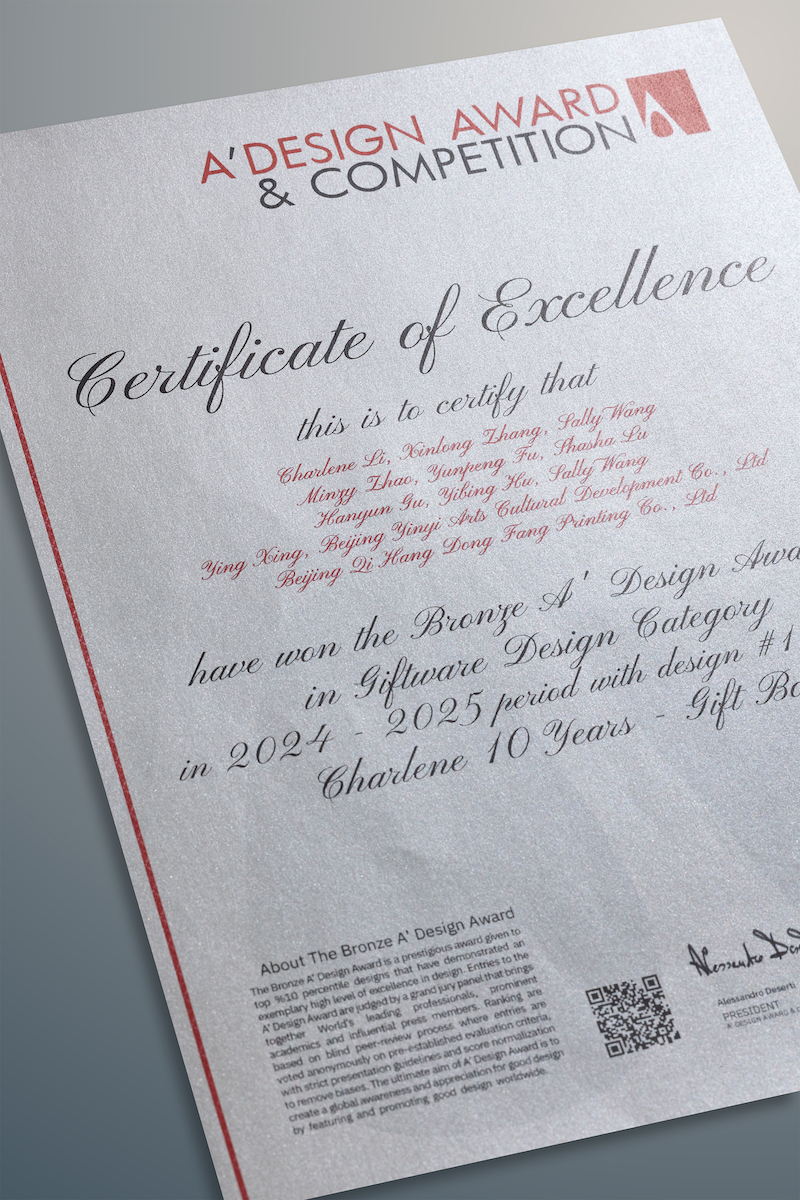 A' DESIGN AWARD
& COMPETITION
Certificate of Excellence
this is to certify that
Charlene Li, Xinlong Zhang, Sally Wang
Minzy Zhao, Yunpeng Fu, Shasha Lu
Hanyun Gu, Yibing Hu, Sally Wang
Ying Xing, Beijing Yinyi Arts Cultural Development Co., Ltd
Beijing Qi Hang Dong Fang Printing Co., Ltd
have won the Bronze A' Design Awa
in Giftware Design Category
in 2024 - 2025 period with design #1
Charlene 10 Years - Gift Bo
About The Bronze A' Design Award
The Bronze A' Design Award is a prestigious award given to
top %10 percentile designs that have demonstrated an
exemplary high level of excellence in design. Entries to the
A' Design Award are judged by a grand jury panel that brings
together World's leading professionals, prominent
academics and influential press members. Ranking are
based on blind peer-review process where entries are
voted anonymously on pre-established evaluation criteria,
with strict presentation guidelines and score normalization
to remove biases. The ultimate aim of A' Design Award is to
create a global awareness and appreciation for good design
by featuring and promoting good design worldwide.
Alessandro Deserti
PRESIDENT
A' DESIGN AWARD &